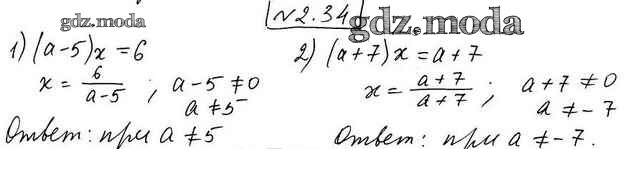 №2.34
gdz.moda gdz.moda
1) (a-5)x = 6
x = 6/(a-5) ; a-5 ≠ 0
a ≠ 5
Ответ: при a ≠ 5
2) (a+7)x = a+7
x = (a+7)/(a+7) ; a+7 ≠ 0
a ≠ -7
Ответ: при a ≠ -7.